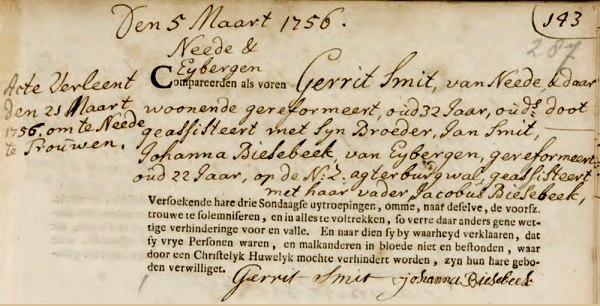 Den 5 Maart 1756.
143
287
Neede &
Eybergen
Acte Verleent
den 21 Maart
1756. om te Neede
te Trouwen.
Compareerden als voren Gerrit Smit, van Neede, & daar
woonende gereformeert, oud 32 Jaar, ouds. doot
geassisteert met syn Broeder, Jan Smit,
Johanna Biesebeek, van Eybergen, gereformeert
oud 22 Jaar, op de N: Z. agterburgwal, geassisteert
met haar vader Jacobus Biesebeek,
Versoekende hare drie Sondaagse uytroepingen, omme, naar deselve, de voorsz.
trouwe te solemniseren, en in alles te voltrekken, so verre daar anders gene wet-
tige verhinderinge voor en valle. En naar dien sy by waarheyd verklaaren, dat
sy vrye Personen waren, en malkanderen in bloede niet en bestonden, waar
door een Christelyk Huwelyk mochte verhindert worden, zyn hun hare gebo-
den verwilliget.
Gerrit Smit Johanna Biesebeek